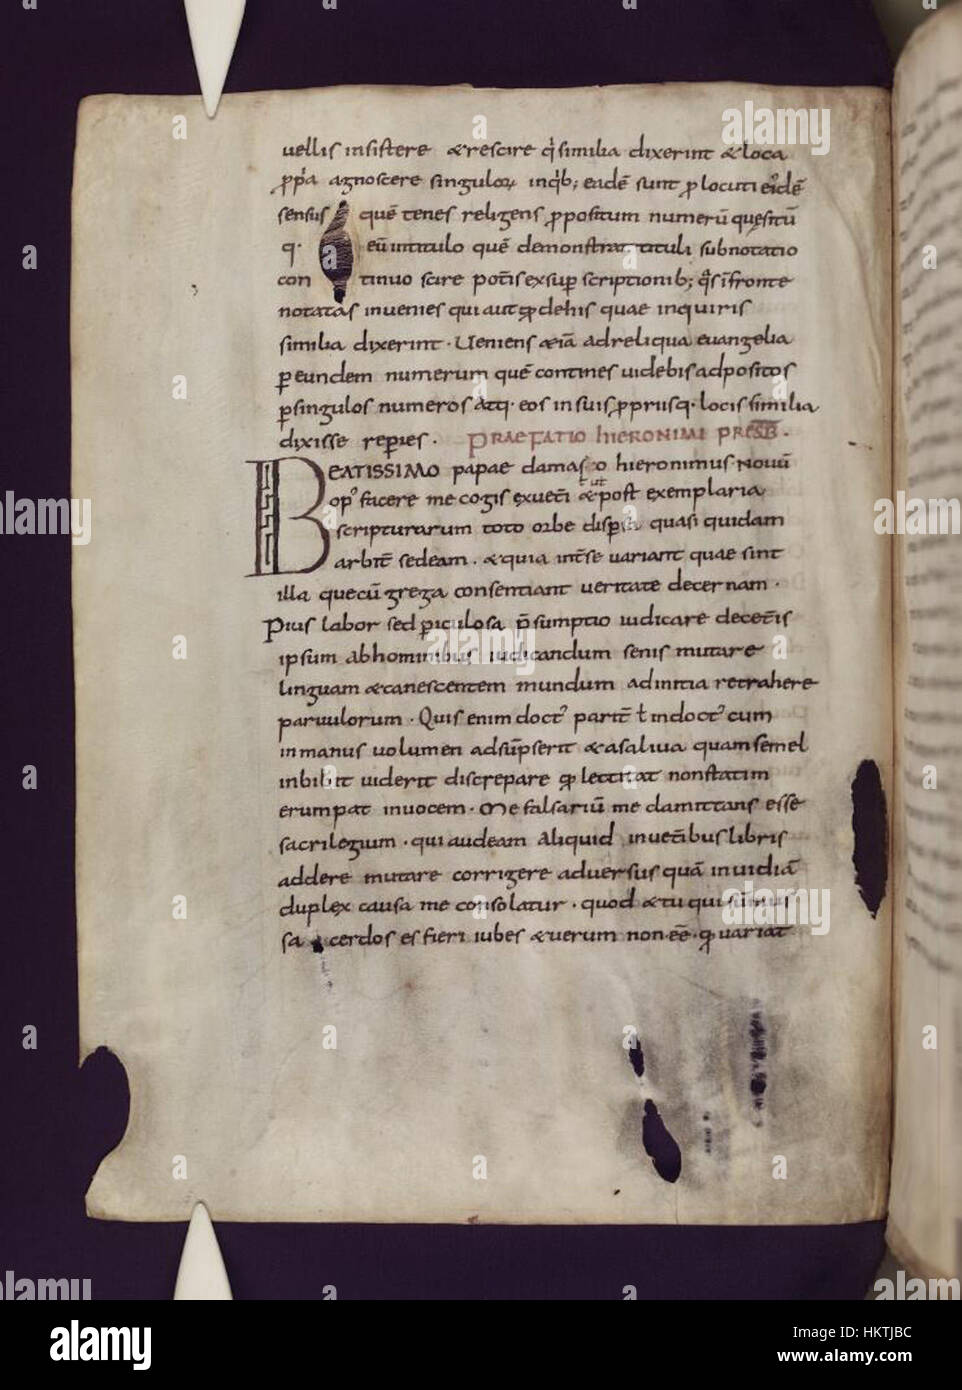 uellis insistere & rescire q̍ similia dixerint & loca
p̱ṗa agnoscere singuloꝝ inq̍b; eadē sunt ꝓlocuti ei᾽dē
sensus quē tenes religens ꝓpositum numerū quęsitū
q· eū intitulo quē demonstrat tituli subnotatio
con tinuo scire potīs exsuꝑ scriptionib; q̄s ī fronte
notatas inuenies qui aut quae inquiris
similia dixerint · Ueniens &iā adreliqua euangelia
ꝑ eundem numerum quē contines uidebis adpositos
ꝑ singulos numeros Atq· eos in suis ꝓpriisq· locis similia
dixisse repꝑies · PRAEFATIO hIERONIMI PRESB̄ ·
BEATISSIMO papae damaso hieronimus · Nouū
op᾽ facere me cogis exuet̄i ut post exemplaria
scripturarum toto orbe dispersa quasi quidam
arbit̄ sedeam · & quia int̄se uariant quae sint
illa quecū grega consentiant ueritate decernam ·
Pius labor sed ꝑiculosa p̄sumptio iudicare decet̄is
ipsum abhominibus iudicandum senis mutare
linguam &canescentem mundum adinitia retrahere
paruulorum · Quis enim doct᾽ parit̄ ƚ indoct᾽ cum
inmanus uolumen adsūpserit &asaliua quam semel
inbibit uiderit discrepare lectitat nonstatim
erumpat inuocem · Me falsariū me damittans esse
sacrilegium · qui audeam Aliquid inuet̄ibus libris
addere mutare corrigere aduersus quā inuidiā
duplex causa me consolatur · quod &tu qui sūmus
sa cerdos es fieri iubes &uerum non eē · uariat
alamy
alamy stock photo
HKTJBC
www.alamy.com